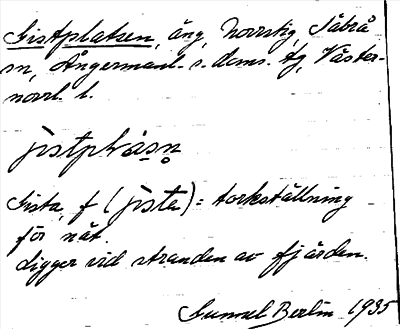 Gistplatsen, äng, Norrstig, Säbrå
sn, Ångermanl. s. doms. tg, Väster-
norrl. l.
jistplàsn̥
Gista, f (jìsta) = torkställning
för nät.
Ligger vid stranden av fjärden.
Gunnel Berlin 1935